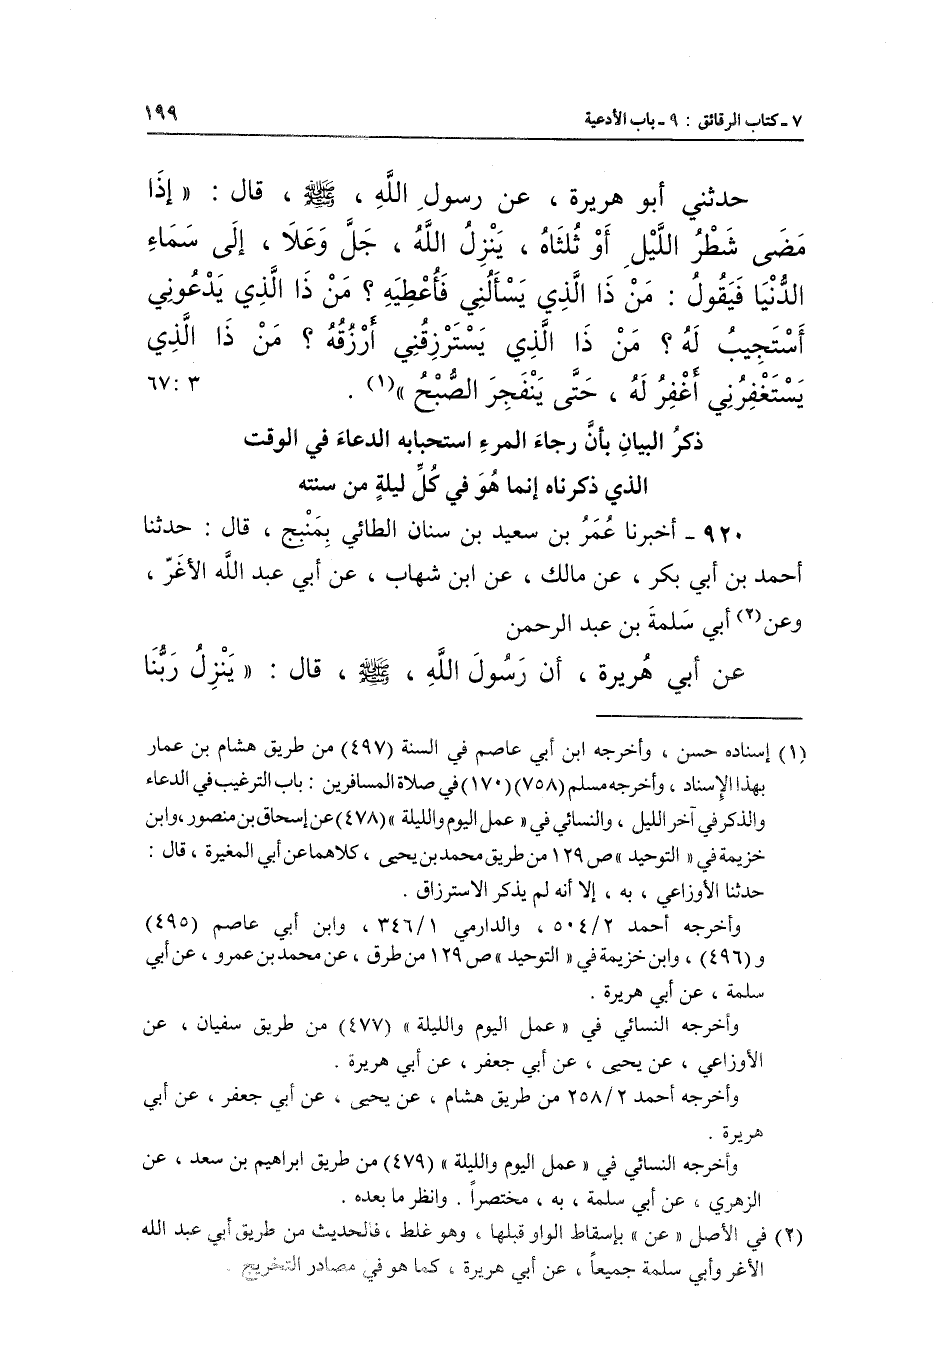 ٧ - كتاب الرقائق : ٩ - باب الأدعية ١٩٩
حدثني أبو هريرة ، عن رسول اللَّهِ ، ﷺ ، قال : « إِذَا
مَضَى شَطْرُ اللَّيْلِ أَوْ ثُلثَاهُ ، يَنْزِلُ اللَّهُ ، جَلَّ وَعَلَا ، إِلَى سَمَاءِ
الدُّنْيَا فَيَقُولُ : مَنْ ذَا الَّذِي يَسْأَلُنِي فَأُعْطِيَهِ ؟ مَنْ ذَا الَّذِي يَدْعُونِي
أَسْتَجِيبُ لَهُ ؟ مَنْ ذَا الَّذِي يَسْتَرْزِقُنِي أَرْزُقُهُ ؟ مَنْ ذَا الَّذِي
يَسْتَغْفِرُنِي أَغْفِرُ لَهُ ، حَتَّى يَنْفَجِرَ الصُّبْحُ »(١) . ٣ : ٦٧
ذكرُ البيانِ بأنَّ رجاءَ المرءِ استحبابه الدعاءَ في الوقت
الذي ذكرناه إنما هُوَ في كُلِّ ليلةٍ من سنته
٩٢٠ - أخبرنا عُمَرُ بن سعيد بن سنان الطائي بِمَنْبِج ، قال : حدثنا
أحمد بن أبي بكر ، عن مالك ، عن ابن شهاب ، عن أبي عبد الله الأغَرّ ،
وعن(٢) أبي سَلمةَ بن عبد الرحمن
عن أبي هُريرة ، أن رَسُولَ اللَّهِ ، ﷺ ، قال : « يَنْزِلُ رَبُّنَا
(١) إسناده حسن ، وأخرجه ابن أبي عاصم في السنة (٤٩٧) من طريق هشام بن عمار
بهذا الإسناد ، وأخرجه مسلم (٧٥٨) (١٧٠) في صلاة المسافرين : باب الترغيب في الدعاء
والذكر في آخر الليل ، والنسائي في « عمل اليوم والليلة » (٤٧٨) عن إسحاق بن منصور ، وابن
خزيمة في « التوحيد » ص ١٢٩ من طريق محمد بن يحيى ، كلاهما عن أبي المغيرة ، قال :
حدثنا الأوزاعي ، به ، إلا أنه لم يذكر الاسترزاق .
وأخرجه أحمد ٥٠٤/٢ ، والدارمي ٣٤٦/١ ، وابن أبي عاصم (٤٩٥)
و (٤٩٦) ، وابن خزيمة في « التوحيد » ص ١٢٩ من طرق ، عن محمد بن عمرو ، عن أبي
سلمة ، عن أبي هريرة .
وأخرجه النسائي في « عمل اليوم والليلة » (٤٧٧) من طريق سفيان ، عن
الأوزاعي ، عن يحيى ، عن أبي جعفر ، عن أبي هريرة .
وأخرجه أحمد ٢٥٨/٢ من طريق هشام ، عن يحيى ، عن أبي جعفر ، عن أبي
هريرة .
وأخرجه النسائي في « عمل اليوم والليلة » (٤٧٩) من طريق ابراهيم بن سعد ، عن
الزهري ، عن أبي سلمة ، به ، مختصراً . وانظر ما بعده .
(٢) في الأصل « عن » بإسقاط الواو قبلها ، وهو غلط ، فالحديث من طريق أبي عبد الله
الأغر وأبي سلمة جميعاً ، عن أبي هريرة ، كما هو في مصادر التخريج .